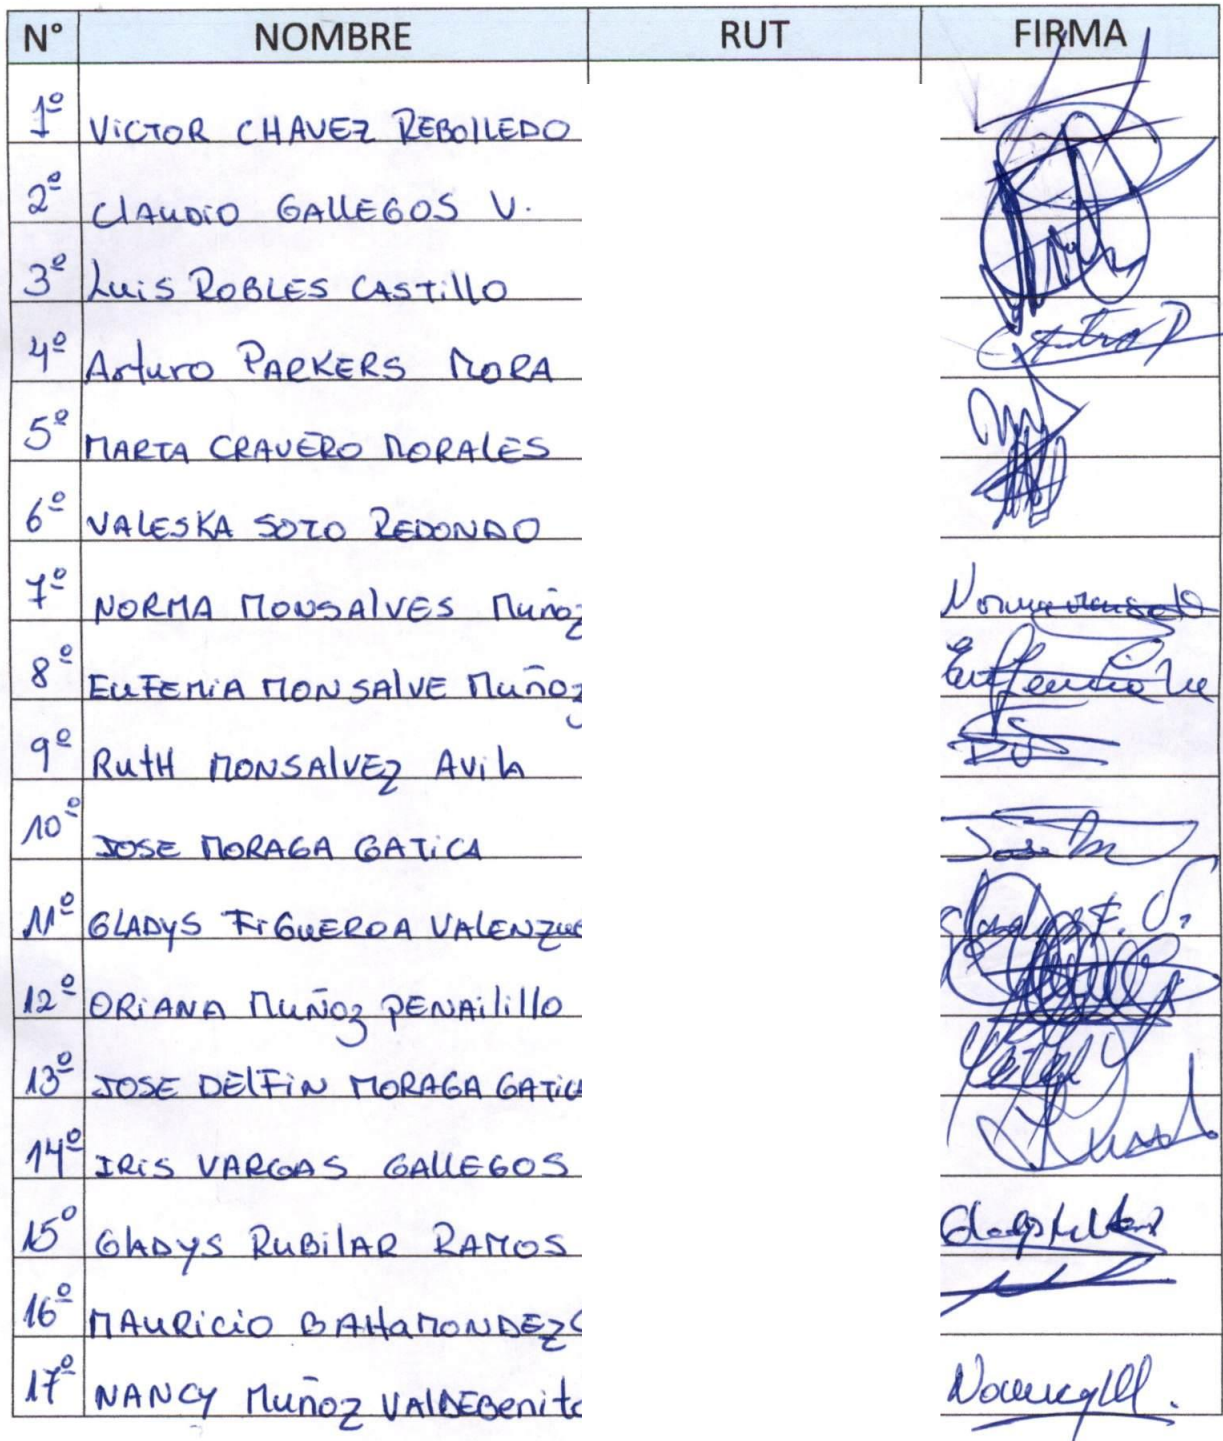 N° NOMBRE RUT FIRMA
1º VICTOR CHAVEZ REBOLLEDO
2º CLAUDIO GALLEGOS V.
3º Luis ROBLES CASTILLO
4º Arturo PARKERS MORA
5º MARTA CRAVERO MORALES
6º VALESKA SOTO REDONDO
7º NORMA MONSALVES MUÑOZ
8º EUFEMIA MONSALVE MUÑOZ
9º RUTH MONSALVEZ AVILA
10º JOSE MORAGA GATICA JoseM
11º GLADYS FIGUEROA VALENZUE Gladys F. V.
12º ORIANA MUÑOZ PENAILILLO
13º JOSE DELFIN MORAGA GATICA
14º IRIS VARGAS GALLEGOS
15º GLADYS RUBILAR RAMOS
16º MAURICIO BAHAMONDEZ
17º NANCY MUÑOZ VALDEBENITO